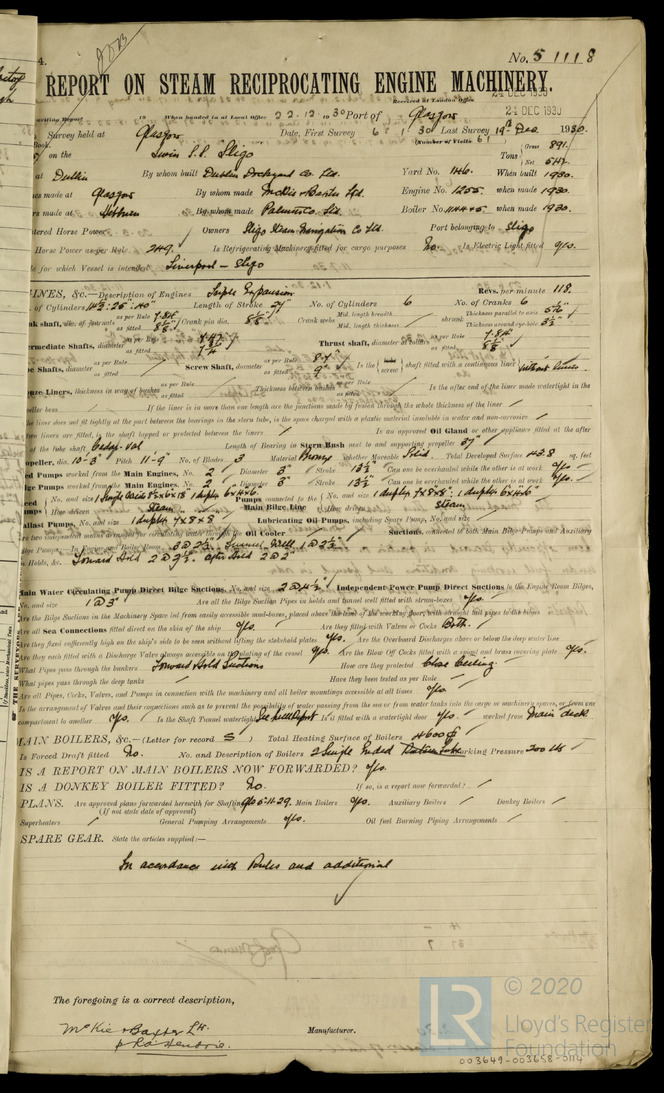 4.
No. 51118
REPORT ON STEAM RECIPROCATING ENGINE MACHINERY.
Received at London Office
24 DEC 1930
When handed in at Local Office 22.12.30 Port of Glasgow
Survey held at Glasgow Date, First Survey 6 1 30 Last Survey 19th Dec. 1930.
Book. (Number of Visits 61)
on the Twin S.S. Sligo Tons Gross 891. Net 547.
at Dublin By whom built Dublin Dockyard Co Ltd. Yard No. 146. When built 1930.
made at Glasgow By whom made McKie & Baxter Ltd. Engine No. 1255. when made 1930.
made at Hebburn By whom made Palmers Co Ltd. Boiler No. when made 1930.
Horse Power Owners Sligo Steam Navigation Co Ltd. Port belonging to Sligo
Horse Power as per Rule 249. Is Refrigerating Machinery fitted for cargo purposes No. Is Electric Light fitted Yes.
for which Vessel is intended Liverpool - Sligo
INES, &c.—Description of Engines Triple Expansion Revs. per minute 118.
of Cylinders Length of Stroke 27" No. of Cylinders 6 No. of Cranks 6
shaft, dia. of journals as per Rule 7.84 as fitted 8⅛" Crank pin dia. 8⅛" Crank webs Mid. length breadth Mid. length thickness shrunk Thickness parallel to axis Thickness around eye-hole
ermediate Shafts, diameter as per Rule 7.47 as fitted Thrust shaft, diameter at collars as per Rule 7.84 as fitted 8⅛
Shafts, diameter as per Rule as fitted Screw Shaft, diameter as per Rule 8.4 as fitted 9" Is the shaft fitted with a continuous liner Without liner
Liners, thickness in way of bushes as per Rule as fitted Thickness between bushes as per Rule as fitted Is the after end of the liner made watertight in the
boss If the liner is in more than one length are the junctions made by fusion through the whole thickness of the liner
liner does not fit tightly at the part between the bearings in the stern tube, is the space charged with a plastic material insoluble in water and non-corrosive
two liners are fitted, is the shaft lapped or protected between the liners Is an approved Oil Gland or other appliance fitted at the after
of the tube shaft Length of Bearing in Stern Bush next to and supporting propeller 37"
opeller, dia. 10-3" Pitch 11-9" No. of Blades 3 Material Bronze whether Moveable Solid Total Developed Surface 43.8 sq. feet
Pumps worked from the Main Engines, No. 2 Diameter 3" Stroke 13½" Can one be overhauled while the other is at work Yes.
Pumps worked from the Main Engines, No. 2 Diameter 3" Stroke 13½" Can one be overhauled while the other is at work Yes.
No. and size Pumps connected to the Main Bilge Line No. and size 1 duplex 7x8x8". 1 duplex 6x4x6
How driven Steam How driven Steam
Ballast Pumps, No. and size 1 duplex 7x8x8 Lubricating Oil Pumps, including Spare Pump, No. and size
Are two independent means arranged for circulating water through the Oil Cooler Suctions, connected to both Main Bilge Pumps and Auxiliary
Bilge Pumps:—In Engine and Boiler Room 3 @ 2½". Tunnel Well 1 @ 2½".
In Holds, &c. Forward Hold 2 @ 2½". After Hold 2 @ 3"
Main Water Circulating Pump Direct Bilge Suctions, No. and size 2 @ 4½" Independent Power Pump Direct Suctions to the Engine Room Bilges,
No. and size 1 @ 3" Are all the Bilge Suction Pipes in holds and tunnel well fitted with strum-boxes Yes.
Are the Bilge Suctions in the Machinery Space led from easily accessible mud-boxes, placed above the level of the working floor, with straight tail pipes to the bilges
Are all Sea Connections fitted direct on the skin of the ship Yes. Are they fitted with Valves or Cocks Both.
Are they fixed sufficiently high on the ship's side to be seen without lifting the stokehold plates Yes. Are the Overboard Discharges above or below the deep water line
Are they each fitted with a Discharge Valve always accessible on the plating of the vessel Yes. Are the Blow Off Cocks fitted with a spigot and brass covering plate Yes.
What Pipes pass through the bunkers Forward Hold Suctions How are they protected Close Ceiling.
What pipes pass through the deep tanks Have they been tested as per Rule
Are all Pipes, Cocks, Valves, and Pumps in connection with the machinery and all boiler mountings accessible at all times Yes.
Is the arrangement of Valves and their connections such as to prevent the possibility of water passing from the sea or from water tanks into the cargo or machinery spaces, or from one
compartment to another Yes. Is the Shaft Tunnel watertight See Hull Report Is it fitted with a watertight door Yes. worked from Main deck
MAIN BOILERS, &c.—(Letter for record S ) Total Heating Surface of Boilers 4600
Is Forced Draft fitted No. No. and Description of Boilers 2 Single Ended Working Pressure 200 lbs
IS A REPORT ON MAIN BOILERS NOW FORWARDED? Yes.
IS A DONKEY BOILER FITTED? No. If so, is a report now forwarded?
PLANS. Are approved plans forwarded herewith for Shafting Yes 5.11.29. Main Boilers Yes. Auxiliary Boilers Donkey Boilers
(If not state date of approval)
Superheaters General Pumping Arrangements Yes. Oil fuel Burning Piping Arrangements
SPARE GEAR. State the articles supplied:—
In accordance with Rules and additional
The foregoing is a correct description,
McKie & Baxter Ltd.
Manufacturer.
© 2020
LR
Lloyd's Register
Foundation
003649-003658-0114